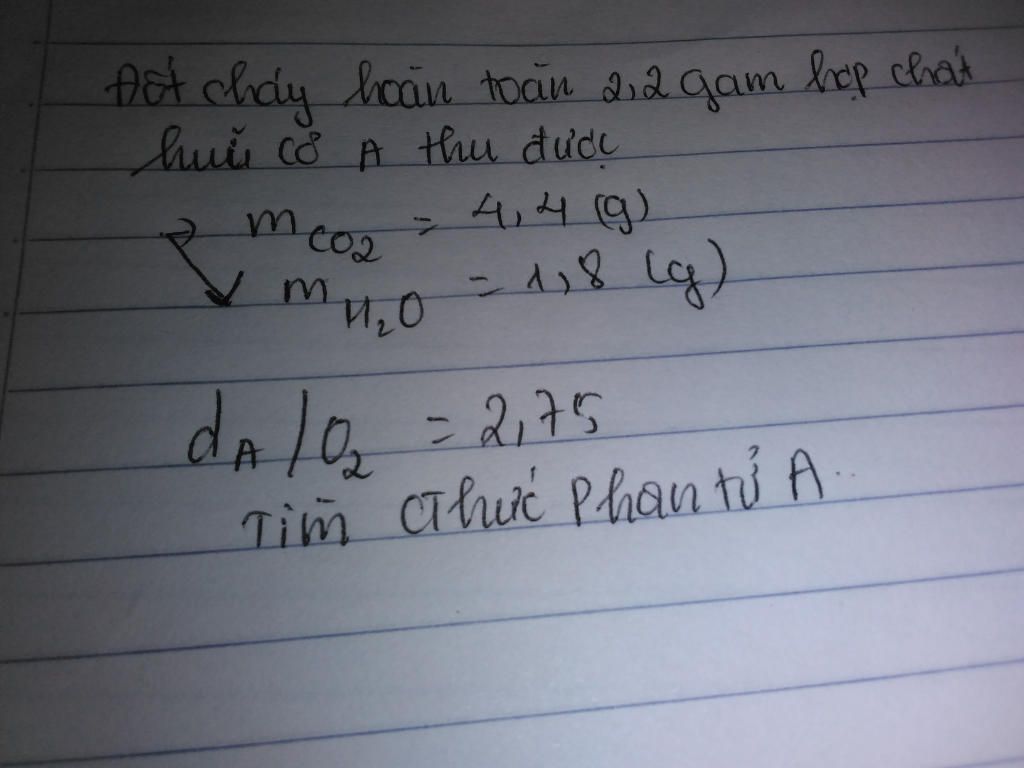 Đốt cháy hoàn toàn 2,2 gam hợp chất
hưũ cơ A thu được
m CO2 = 4,4 (g)
m H2O = 1,8 (g)
dA/O2 = 2,75
Tìm CThức Phan tử A..